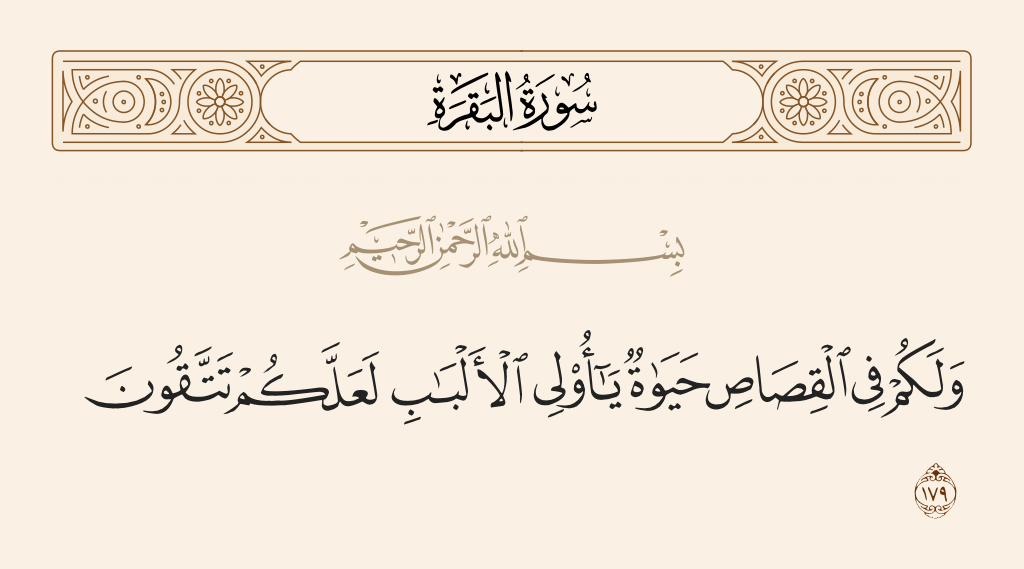 سُورَةُ البَقَرَةِ
بِسْمِ ٱللَّهِ ٱلرَّحْمَٰنِ ٱلرَّحِيمِ
وَلَكُمْ فِى ٱلْقِصَاصِ حَيَوٰةٌ يَٰٓأُو۟لِى ٱلْأَلْبَٰبِ لَعَلَّكُمْ تَتَّقُونَ
١٧٩